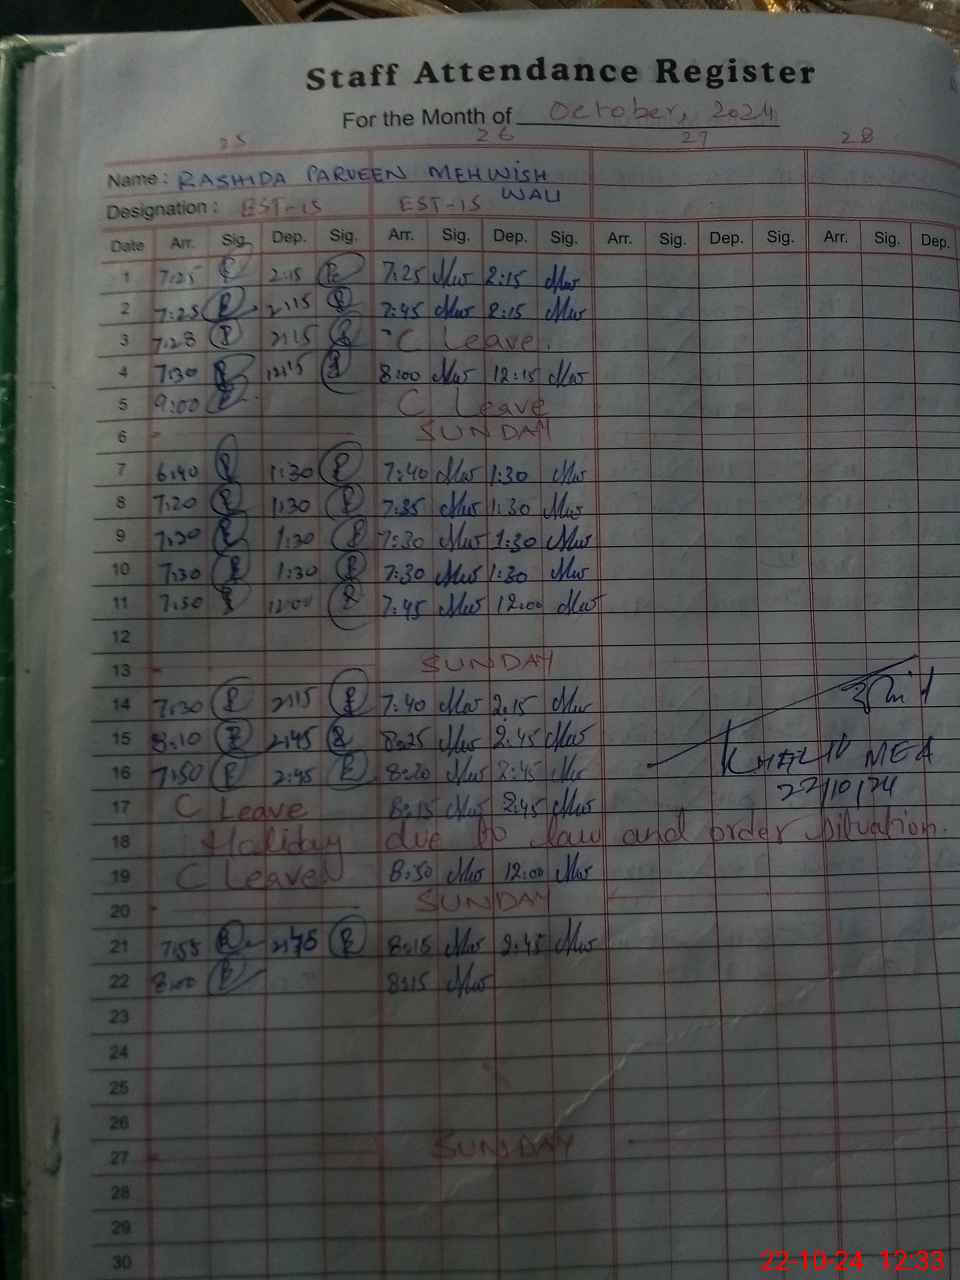 Staff Attendance Register
For the Month of October, 2024
25 26 27 28
Name : RASHIDA PARVEEN MEHWISH
WALI
Designation : EST-15 EST-15
Date Arr. Sig. Dep. Sig. Arr. Sig. Dep. Sig. Arr. Sig. Dep. Sig. Arr. Sig. Dep.
1 7:25 2:15 7:25 2:15
2 7:25 2:15 7:45 2:15
3 7:28 2:15 C Leave.
4 7:30 12:15 8:00 12:15
5 9:00 C Leave
6 SUNDAY
7 6:40 1:30 7:40 1:30
8 7:20 1:30 7:35 1:30
9 7:30 1:30 7:30 1:30
10 7:30 1:30 7:30 1:30
11 7:50 12:00 7:45 12:00
12
13 SUNDAY
14 7:30 2:15 7:40 2:15
15 8:10 2:45 8:25 2:45
16 7:50 2:45 8:20 2:45
MEA
22/10/24
17 C Leave 8:15 2:45
18 Holiday due to law and order situation.
19 C Leave 8:30 12:00
20 SUNDAY
21 7:55 2:45 8:15 2:45
22 8:00 8:15
23
24
25
26
27 SUNDAY
28
29
30
22-10-24 12:33